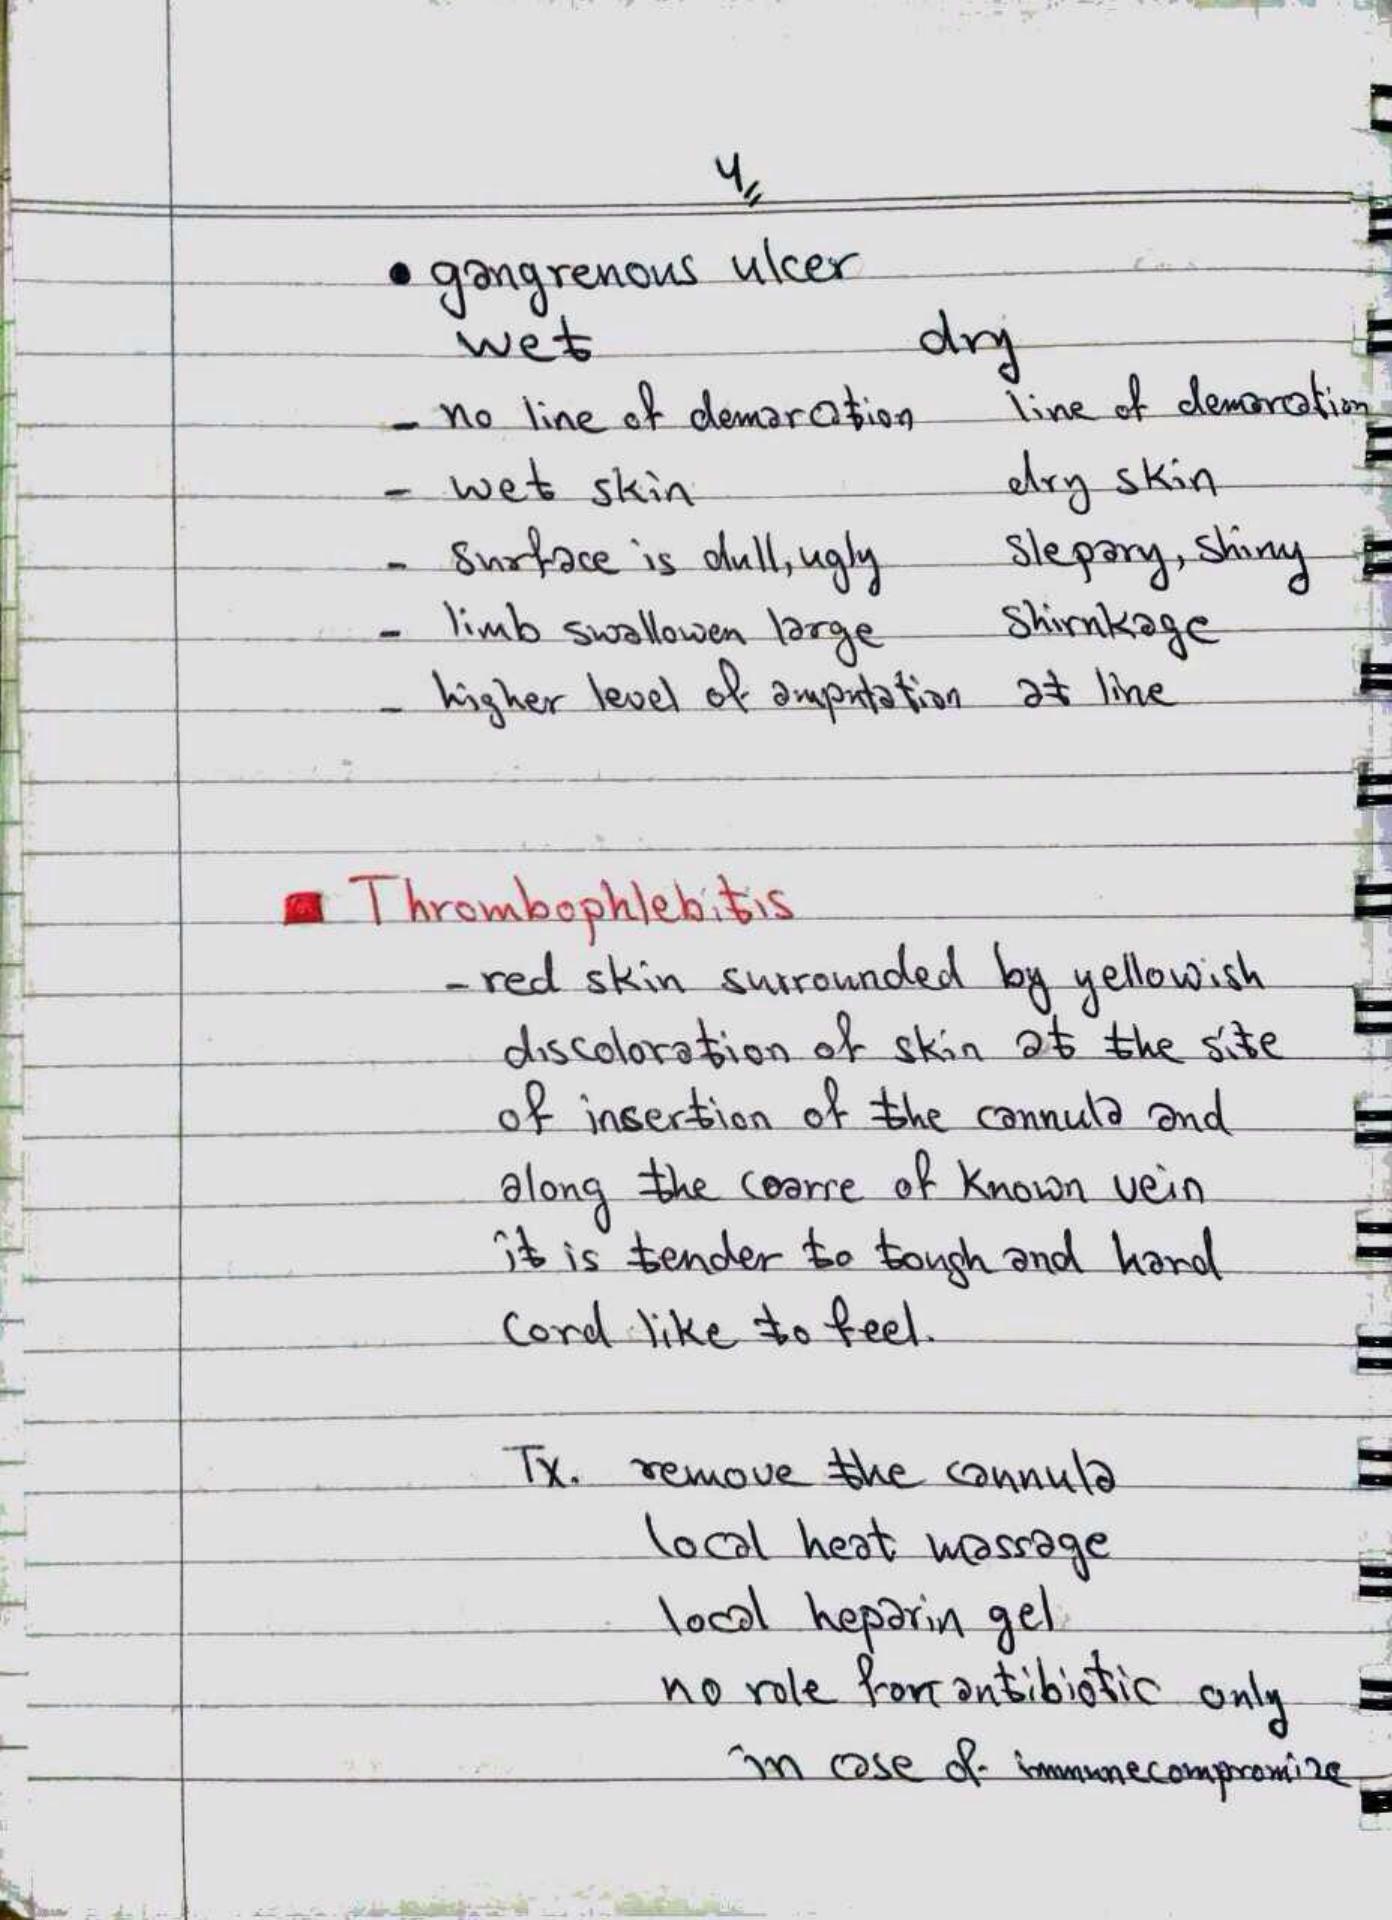 4
• gangrenous ulcer
wet dry
- no line of demarcation line of demarcation
- wet skin dry skin
- surface is dull, ugly slepary, shiny
- limb swallowen large shirnkage
- higher level of amputation at line
■ Thrombophlebitis
- red skin surrounded by yellowish
discoloration of skin at the site
of insertion of the cannula and
along the coarre of known vein
it is tender to tough and hard
cord like to feel.
Tx. remove the cannula
local heat massage
local heparin gel
no role for antibiotic only
in case of immunecompromize